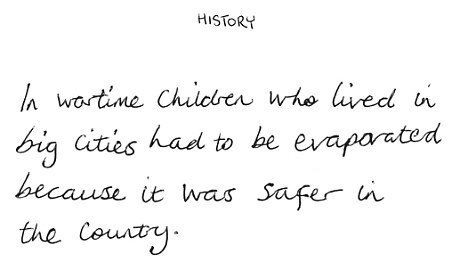 HISTORY
In wartime Children who lived in
big cities had to be evaporated
because it was safer in
the country.